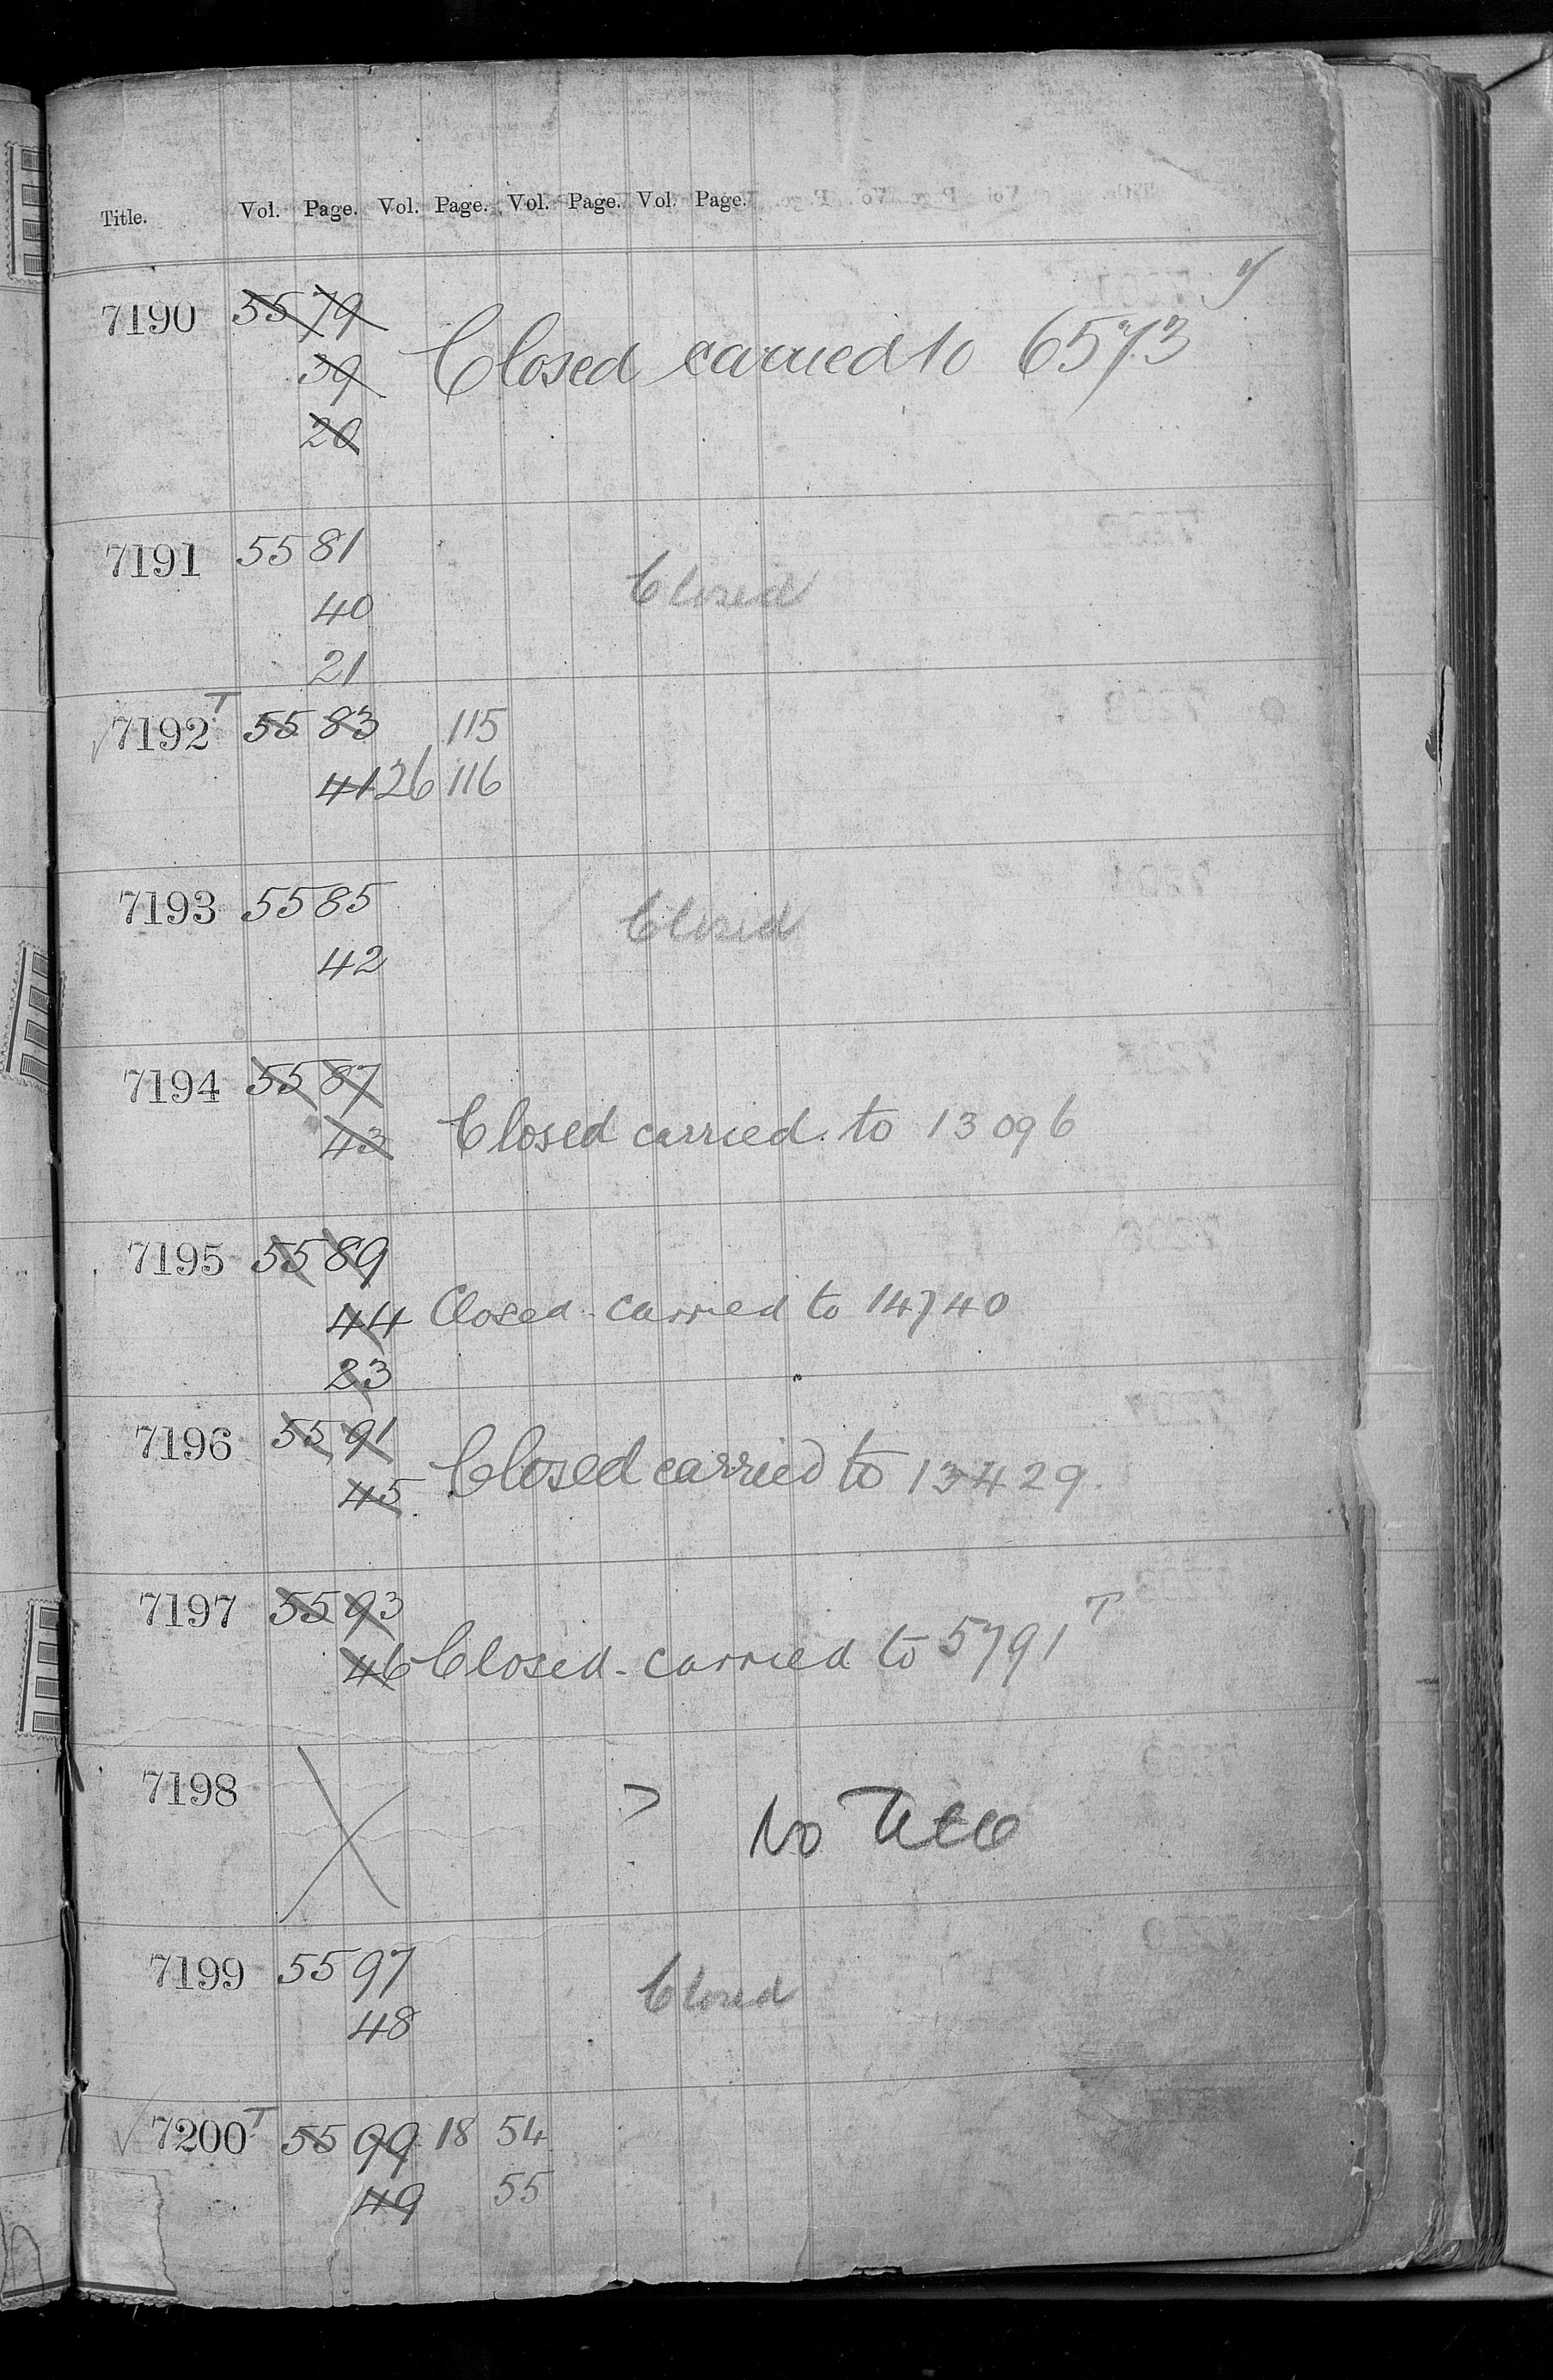 Title. Vol. Page. Vol. Page. Vol. Page. Vol. Page.
7190 55 79
39 Closed carried to 6573 y
20
7191 55 81
Closed
40
21
7192 T 55 83 115
41 26 116
7193 55 85
Closed
42
7194 55 87
43 Closed carried to 13096
7195 55 89
44 Closed carried to 14740
23
7196 55 91
45 Closed carried to 13429.
7197 55 93
46 Closed - carried to 5791 T
7198 No Title
7199 55 97
Closed
48
7200 T 55 99 18 54
49 55